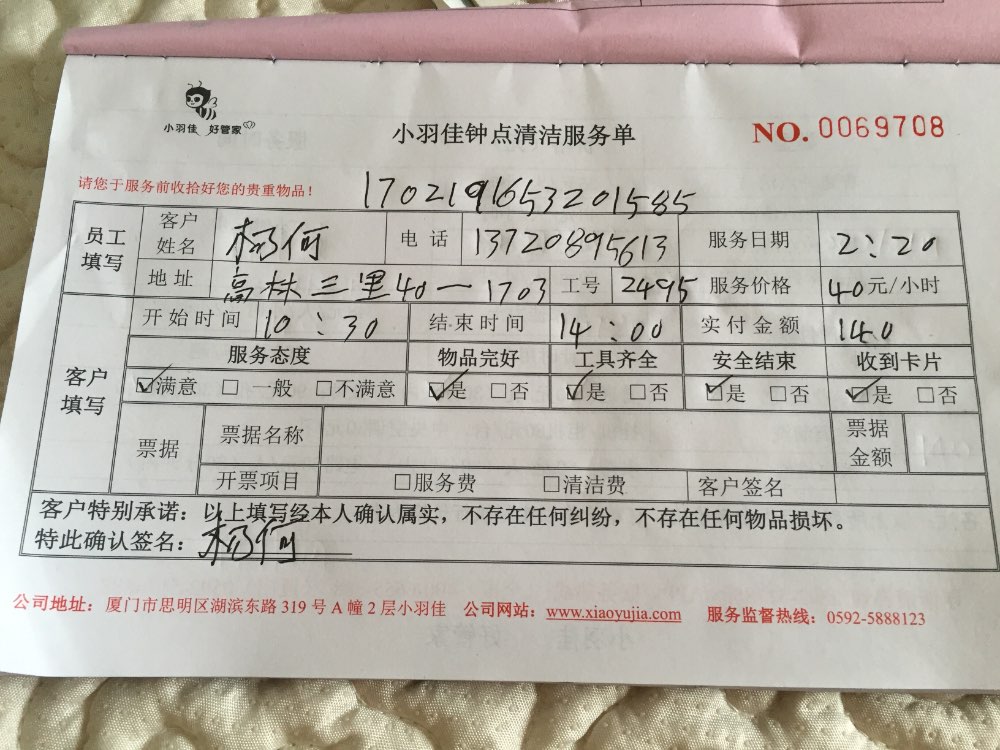 小羽佳 好管家
小羽佳钟点清洁服务单
NO. 0069708
请您于服务前收拾好您的贵重物品！
1702191653201585
员工填写 客户姓名 杨何 电话 13720895613 服务日期 2:20
地址 高林三里40一1703 工号 2495 服务价格 40元/小时
客户填写 开始时间 10:30 结束时间 14:00 实付金额 140
服务态度 物品完好 工具齐全 安全结束 收到卡片
☑满意 □一般 □不满意 ☑是 □否 ☑是 □否 ☑是 □否 ☑是 □否
票据 票据名称 票据金额
开票项目 □服务费 □清洁费 客户签名
客户特别承诺：以上填写经本人确认属实，不存在任何纠纷，不存在任何物品损坏。
特此确认签名：杨何
公司地址：厦门市思明区湖滨东路 319 号 A 幢 2 层小羽佳 公司网站：www.xiaoyujia.com 服务监督热线：0592-5888123